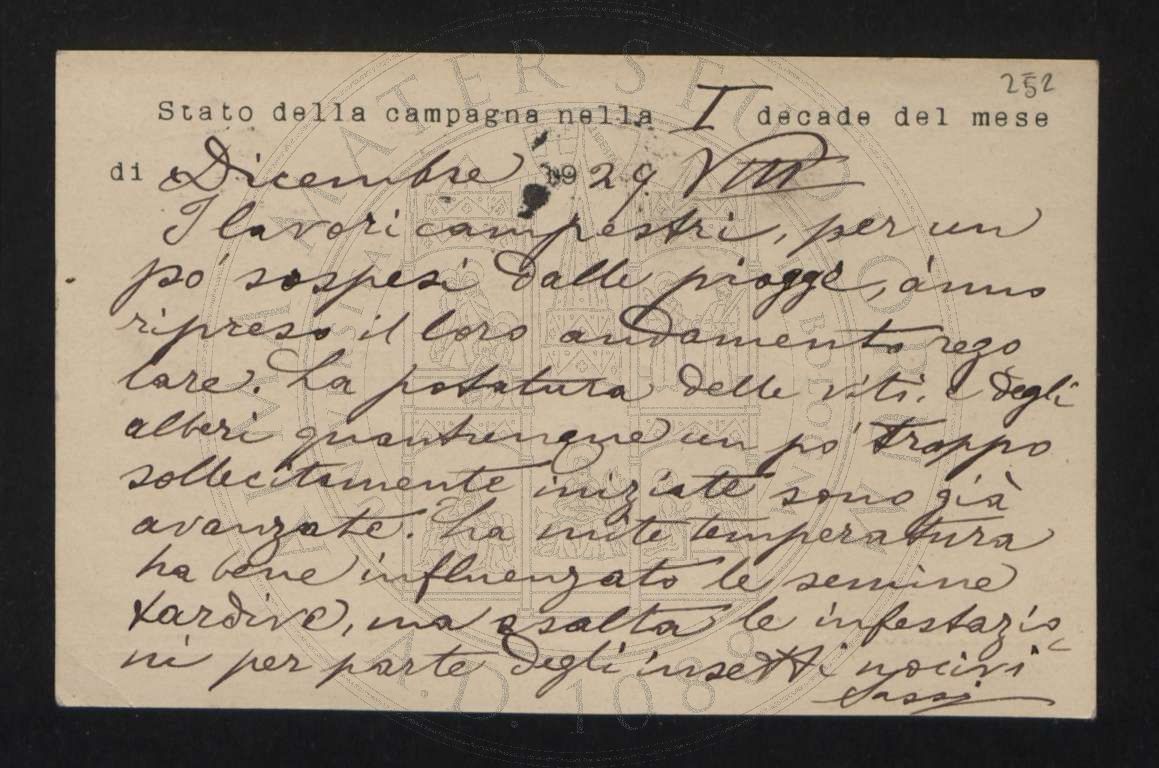 252
Stato della campagna nella I decade del mese
di Dicembre 1929 VIII
I lavori campestri, per un
pò sospesi dalle piogge, ànno
ripreso il loro andamento rego
lare. La potatura delle viti, e degli
alberi quantunque un pò troppo
sollecitamente iniziate sono già
avanzate. La mite temperatura
ha bene influenzato le semine
tardive, ma esalta le infestazio
ni per parte degli insetti nocivi
Sassi
ALMA MATER STUDIORUM
A.D. 1088